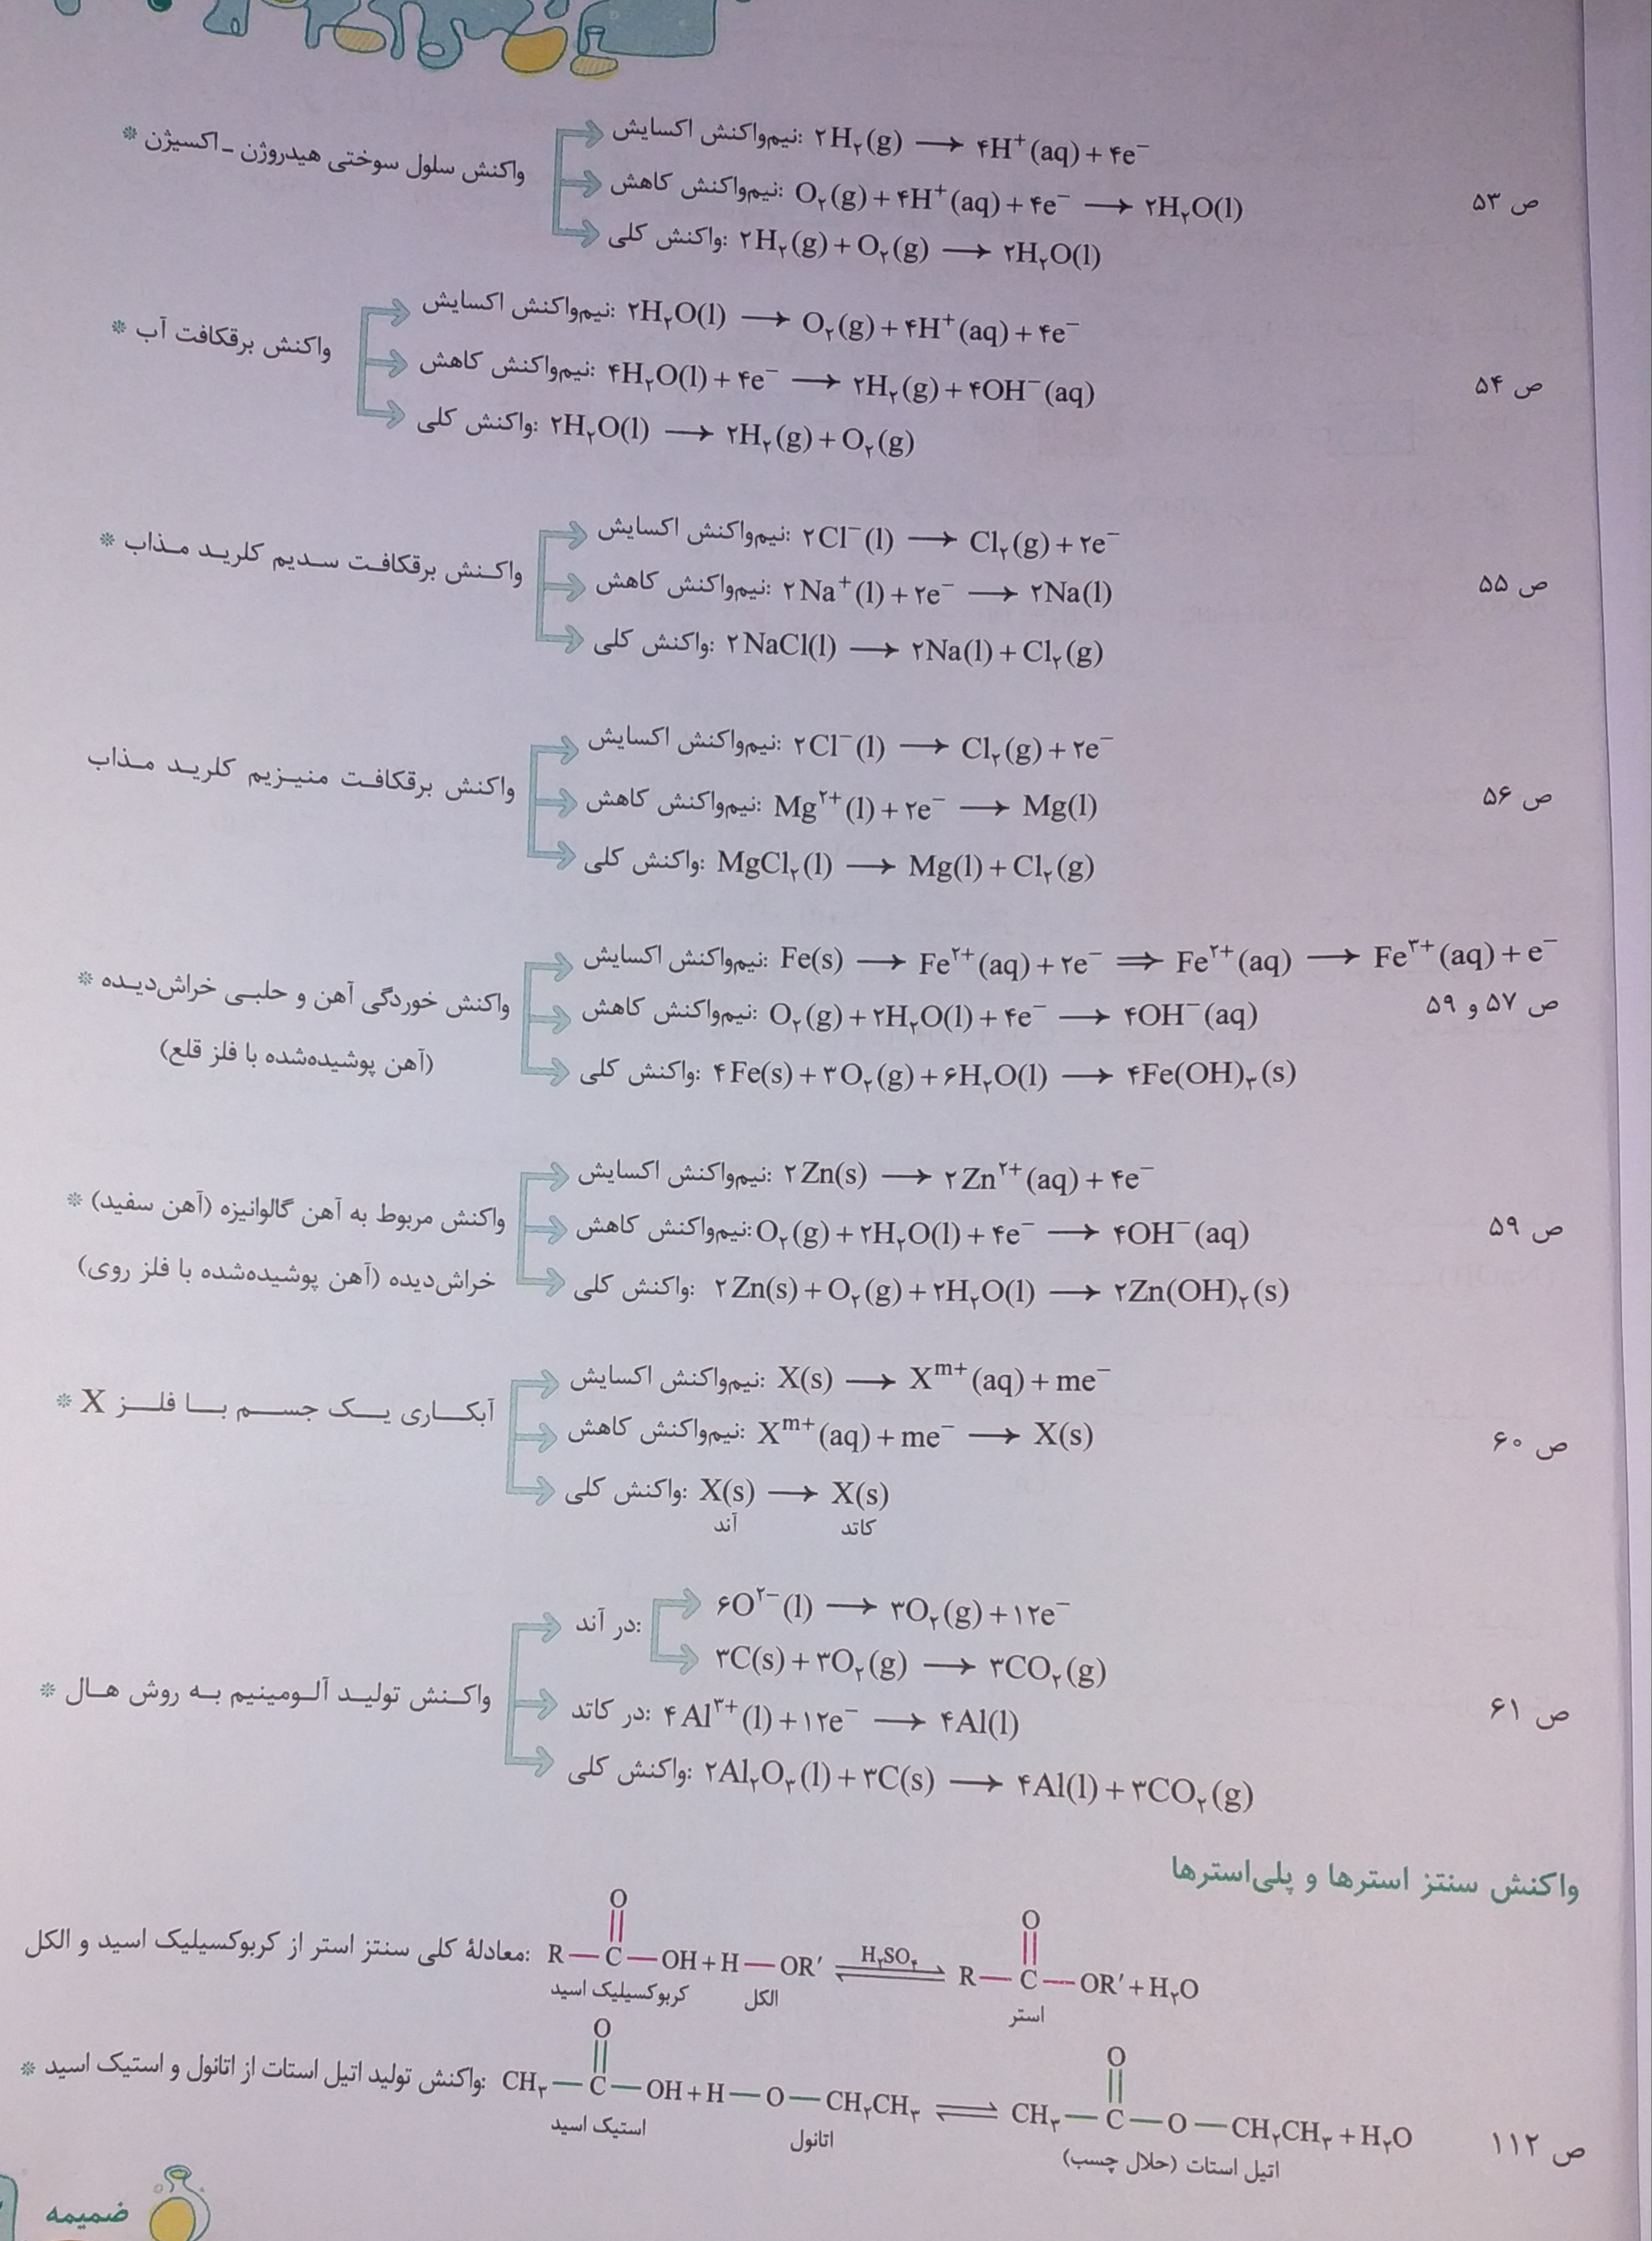 * واکنش سلول سوختی هیدروژن - اکسیژن
نیم‌واکنش اکسایش: ۲H₂(g) ⟶ ۴H⁺(aq) + ۴e⁻
نیم‌واکنش کاهش: O₂(g) + ۴H⁺(aq) + ۴e⁻ ⟶ ۲H₂O(l)
ص ۵۳
واکنش کلی: ۲H₂(g) + O₂(g) ⟶ ۲H₂O(l)
* واکنش برقکافت آب
نیم‌واکنش اکسایش: ۲H₂O(l) ⟶ O₂(g) + ۴H⁺(aq) + ۴e⁻
نیم‌واکنش کاهش: ۴H₂O(l) + ۴e⁻ ⟶ ۲H₂(g) + ۴OH⁻(aq)
ص ۵۴
واکنش کلی: ۲H₂O(l) ⟶ ۲H₂(g) + O₂(g)
* واکنش برقکافت سدیم کلرید مذاب
نیم‌واکنش اکسایش: ۲Cl⁻(l) ⟶ Cl₂(g) + ۲e⁻
نیم‌واکنش کاهش: ۲Na⁺(l) + ۲e⁻ ⟶ ۲Na(l)
ص ۵۵
واکنش کلی: ۲NaCl(l) ⟶ ۲Na(l) + Cl₂(g)
واکنش برقکافت منیزیم کلرید مذاب
نیم‌واکنش اکسایش: ۲Cl⁻(l) ⟶ Cl₂(g) + ۲e⁻
نیم‌واکنش کاهش: Mg²⁺(l) + ۲e⁻ ⟶ Mg(l)
ص ۵۶
واکنش کلی: MgCl₂(l) ⟶ Mg(l) + Cl₂(g)
* واکنش خوردگی آهن و حلبی خراش‌دیده
(آهن پوشیده‌شده با فلز قلع)
نیم‌واکنش اکسایش: Fe(s) ⟶ Fe²⁺(aq) + ۲e⁻ ⟹ Fe²⁺(aq) ⟶ Fe³⁺(aq) + e⁻
نیم‌واکنش کاهش: O₂(g) + ۲H₂O(l) + ۴e⁻ ⟶ ۴OH⁻(aq)
ص ۵۷ و ۵۹
واکنش کلی: ۴Fe(s) + ۳O₂(g) + ۶H₂O(l) ⟶ ۴Fe(OH)₃(s)
* واکنش مربوط به آهن گالوانیزه (آهن سفید)
خراش‌دیده (آهن پوشیده‌شده با فلز روی)
نیم‌واکنش اکسایش: ۲Zn(s) ⟶ ۲Zn²⁺(aq) + ۴e⁻
نیم‌واکنش کاهش: O₂(g) + ۲H₂O(l) + ۴e⁻ ⟶ ۴OH⁻(aq)
ص ۵۹
واکنش کلی: ۲Zn(s) + O₂(g) + ۲H₂O(l) ⟶ ۲Zn(OH)₂(s)
* آبکاری یک جسم با فلز X
نیم‌واکنش اکسایش: X(s) ⟶ Xᵐ⁺(aq) + me⁻
نیم‌واکنش کاهش: Xᵐ⁺(aq) + me⁻ ⟶ X(s)
ص ۶۰
واکنش کلی: X(s) ⟶ X(s)
آند کاتد
* واکنش تولید آلومینیم به روش هال
در آند: ۶O²⁻(l) ⟶ ۳O₂(g) + ۱۲e⁻
۳C(s) + ۳O₂(g) ⟶ ۳CO₂(g)
در کاتد: ۴Al³⁺(l) + ۱۲e⁻ ⟶ ۴Al(l)
ص ۶۱
واکنش کلی: ۲Al₂O₃(l) + ۳C(s) ⟶ ۴Al(l) + ۳CO₂(g)
واکنش سنتز استرها و پلی‌استرها
O O
معادلهٔ کلی سنتز استر از کربوکسیلیک اسید و الکل: R—C—OH + H—OR′ ⇌ H₂SO₄ R—C—OR′ + H₂O
کربوکسیلیک اسید الکل استر
O O
* واکنش تولید اتیل استات از اتانول و استیک اسید: CH₃—C—OH + H—O—CH₂CH₃ ⇌ CH₃—C—O—CH₂CH₃ + H₂O
ص ۱۱۲
استیک اسید اتانول اتیل استات (حلال چسب)
ضمیمه